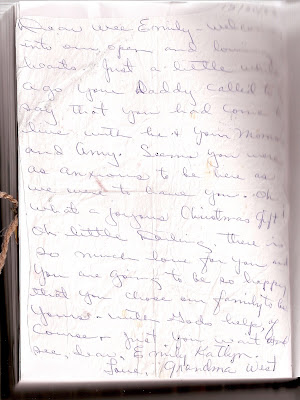 Dear Wee Emily - welcome
into our open and loving
hearts. Just a little while
ago your Daddy called to
say that you had come to
live with he & your Momma
and Amy. Seems you were
as anxious to be here as
we were to have you. Oh
what a joyous Christmas gift!
Oh little Darling there is
so much love for you, and
you are going to be so happy
that you chose our family to be
yours - with Gods help, of
course. Just you wait and
see, dear, Emily Katlyn.
Love, Grandma West